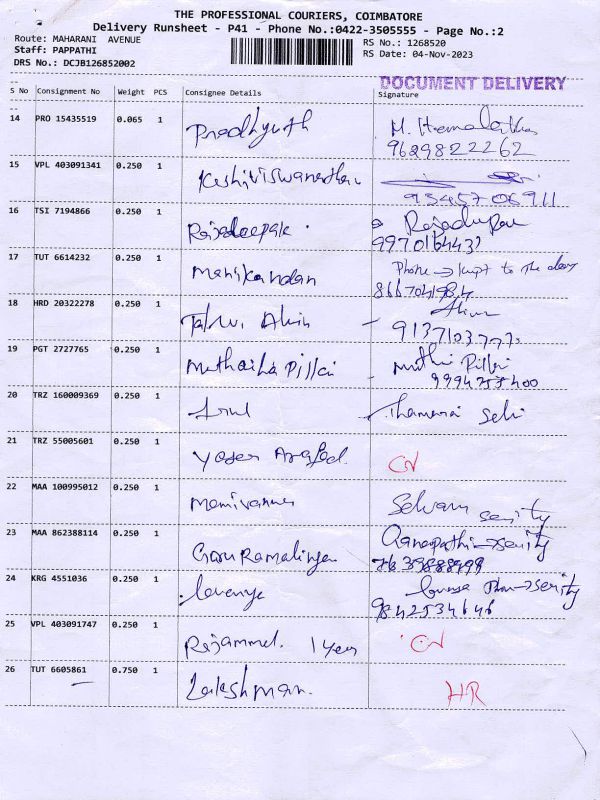 THE PROFESSIONAL COURIERS, COIMBATORE
Delivery Runsheet - P41 - Phone No.:0422-3505555 - Page No.:2
Route: MAHARANI AVENUE
Staff: PAPPATHI
DRS No.: DCJB126852002
RS No.: 1268520
RS Date: 04-Nov-2023
DOCUMENT DELIVERY
S No Consignment No Weight PCS Consignee Details Signature
14 PRO 15435519 0.065 1 Pradhyuth
9629822262
15 VPL 403091341 0.250 1 Kashiviswanathan
9345706911
16 TSI 7194866 0.250 1 Rajadeepak
17 TUT 6614232 0.250 1 Manikandan Phone → kept to the door
18 HRD 20322278 0.250 1
19 PGT 2727765 0.250 1 Muthaiha Pillai Muthu Pillai
20 TRZ 160009369 0.250 1 Arul Thamarai Selvi
21 TRZ 55005601 0.250 1 Yaser Arafed.
22 MAA 100995012 0.250 1 Selvam serity
23 MAA 862388114 0.250 1 GuruRamalingam Ganapathi → serity
24 KRG 4551036 0.250 1 Lavanya → serity
9842534646
25 VPL 403091747 0.250 1 Rajammal.
26 TUT 6605861 0.750 1 Lakshman. HR